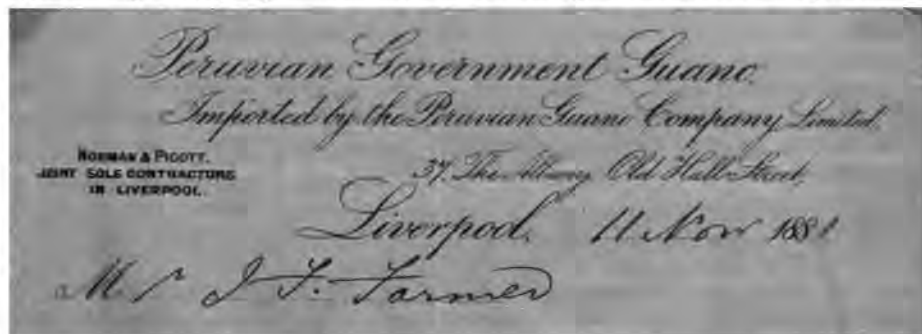 Peruvian Government Guano.
Imported by the Peruvian Guano Company Limited.
NORMAN & PIGOTT.
JOINT SOLE CONTRACTORS
IN LIVERPOOL.
37, The Albany, Old Hall Street,
Liverpool, 11 Nov 1881
Mr J. F. Farmer